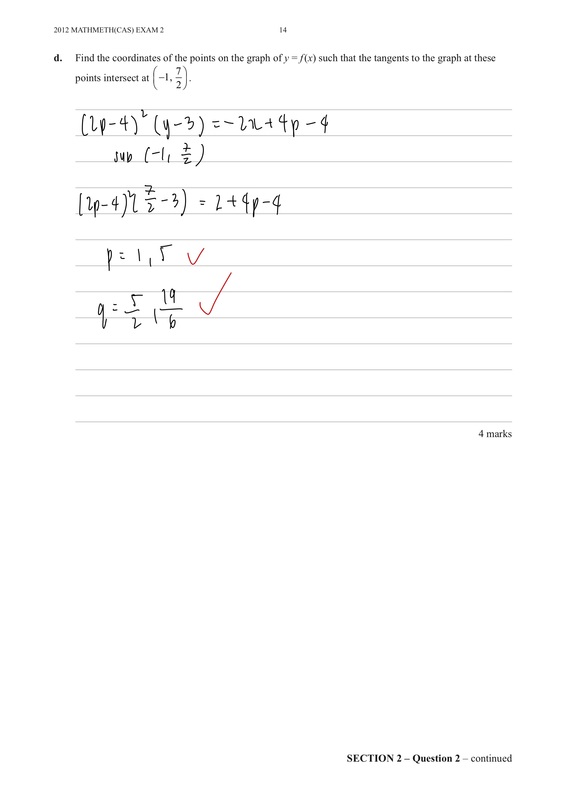 2012 MATHMETH(CAS) EXAM 2 14
d. Find the coordinates of the points on the graph of y = f(x) such that the tangents to the graph at these
points intersect at (−1, 7/2).
(2p−4)² (y−3) = −2x+4p−4
sub (−1, 7/2)
(2p−4)²(7/2 −3) = 2+4p−4
p = 1, 5 ✓
q = 5/2, 19/6 ✓
4 marks
SECTION 2 – Question 2 – continued